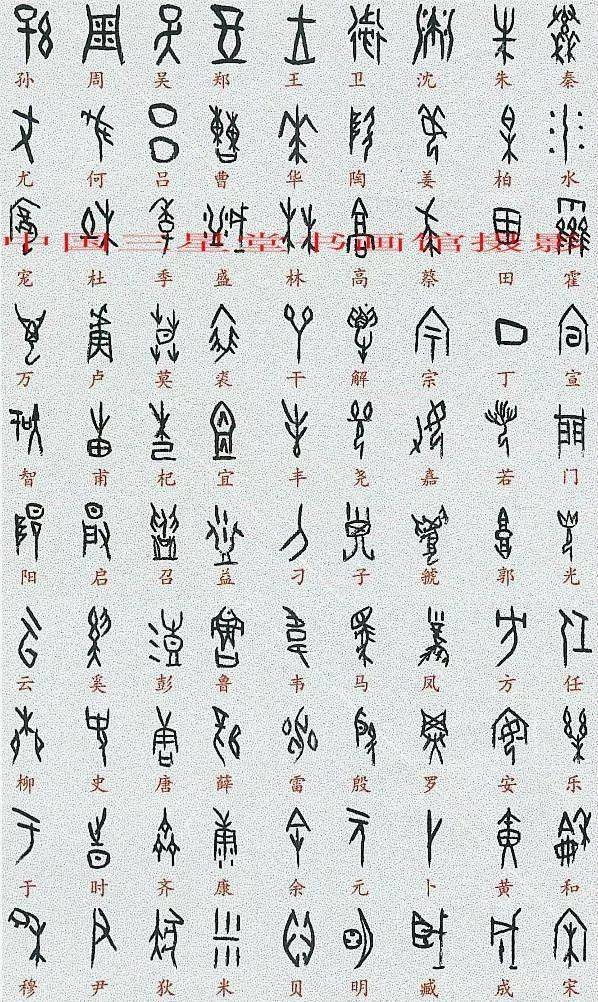 孙 周 吴 郑 王 卫 沈 朱 秦
尤 何 吕 曹 华 陶 姜 柏 水
中国三星堂书画馆摄影
宠 杜 季 盛 林 高 蔡 田 霍
万 卢 莫 裘 干 解 宗 丁 宣
智 甫 杞 宜 丰 尧 嘉 若 门
阳 启 召 益 刁 子 虢 郭 光
云 奚 彭 鲁 韦 马 凤 方 任
柳 史 唐 薛 雷 殷 罗 安 乐
于 时 齐 康 余 元 卜 黄 和
穆 尹 狄 米 贝 明 臧 成 宋